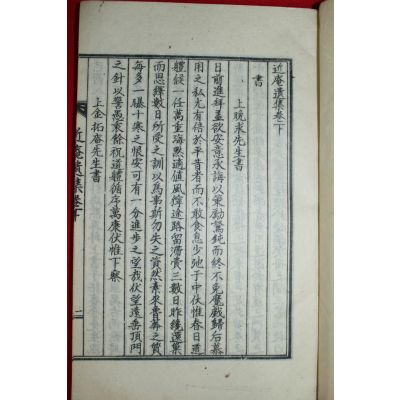 近庵遺集卷之下
書
上晩求先生書
日前進拜盖欲安意承誨以策勵駑鈍而終不免魔戲歸后慕
用之私尤有倍於平昔者而不敢食息少弛于中伏惟春日道
體候一任萬重海黙適値風緯途路留滯費三數日昨纔還巢
而思繹數日所受之訓以爲事斯勿失之資然素來魯莽之質
每多一曝十寒之恨安可有一分進步之望哉伏望遠垂頂門
之針以警愚衷餘祝道體循序萬康伏惟下察
上金拓庵先生書
近庵遺集卷下
二